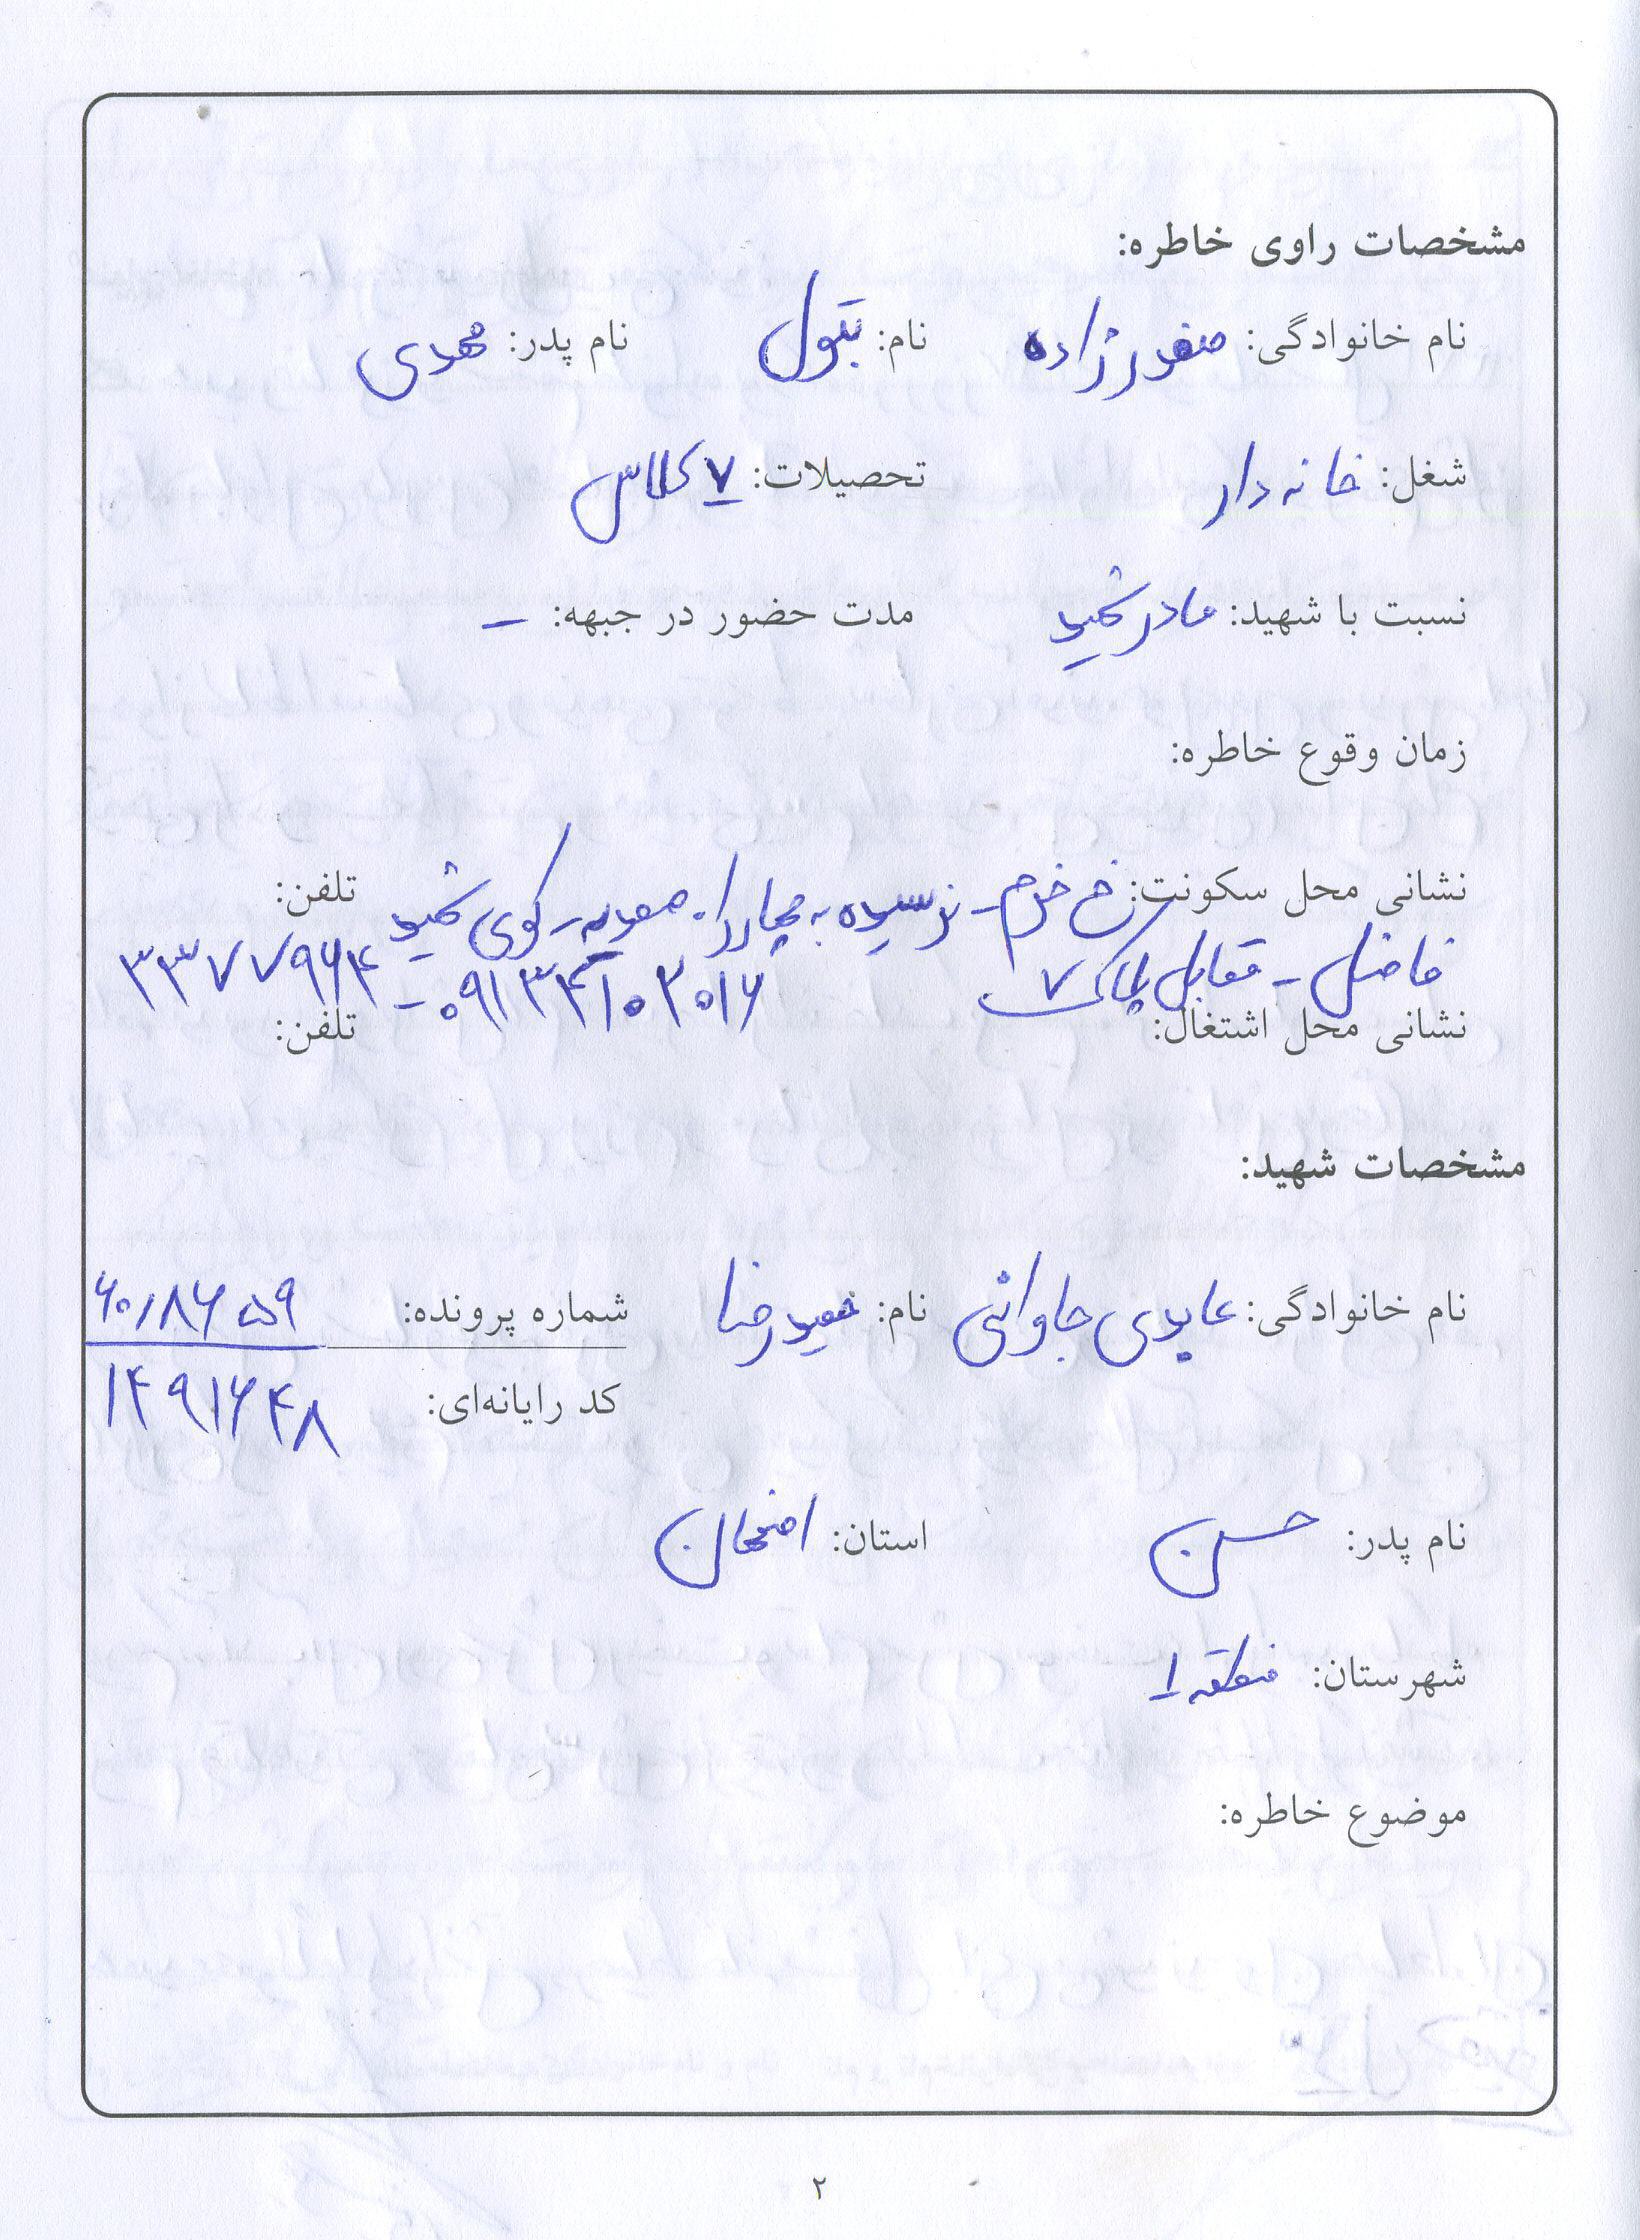 مشخصات راوی خاطره:
نام خانوادگی: صفدرزاده نام: بتول نام پدر: مهدی
شغل: خانه دار تحصیلات: ۷ کلاس
نسبت با شهید: مادر شهید مدت حضور در جبهه: –
زمان وقوع خاطره:
نشانی محل سکونت: خ خرم – نرسیده به چهارراه – کوی شهید تلفن:
فاضل – مقابل پلاک ۷ ۰۹۱۳۴۱۰۲۰۱۶ – ۳۳۷۷۹۶۴
نشانی محل اشتغال: تلفن:
مشخصات شهید:
نام خانوادگی: عابدی جاوانی نام: حمیدرضا شماره پرونده: ۶۰/۸۶۵۹
کد رایانه‌ای: ۱۴۹۱۶۴۸
نام پدر: حسن استان: اصفهان
شهرستان: منطقه ۱
موضوع خاطره:
۲